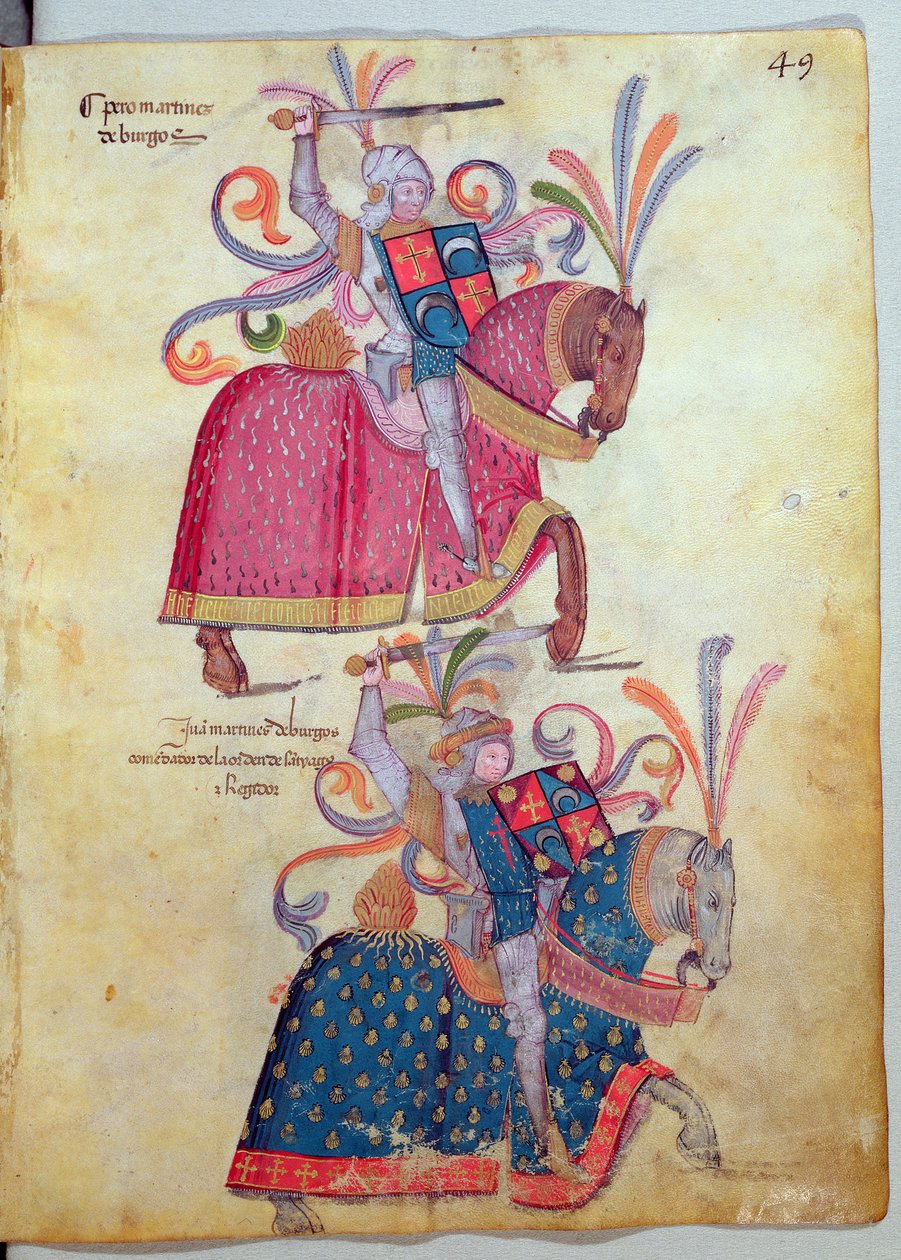 49
¶ pero martines
de burgos
Juā martines de burgos
comēdador de la orden de sātyago
⁊ Regidor